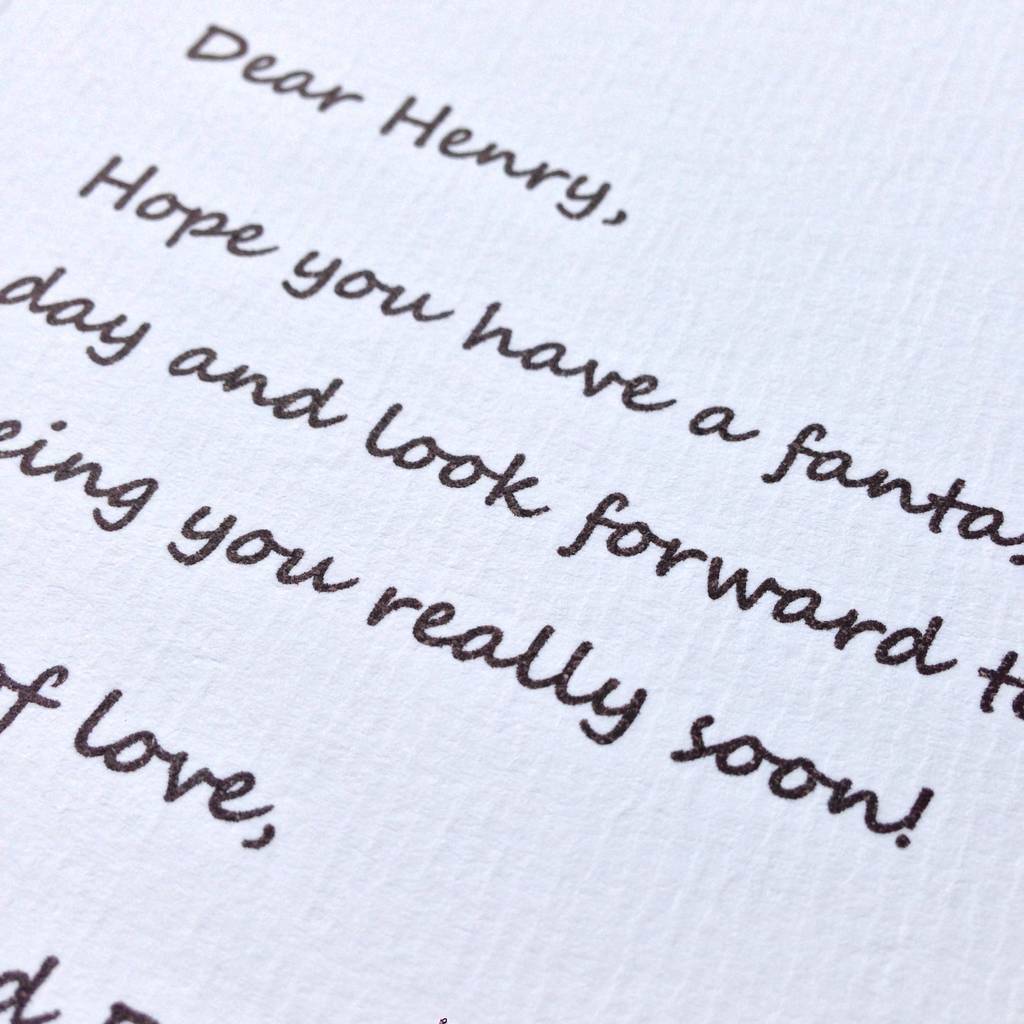 Dear Henry,
Hope you have a
day and look forward
you really soon!
love,